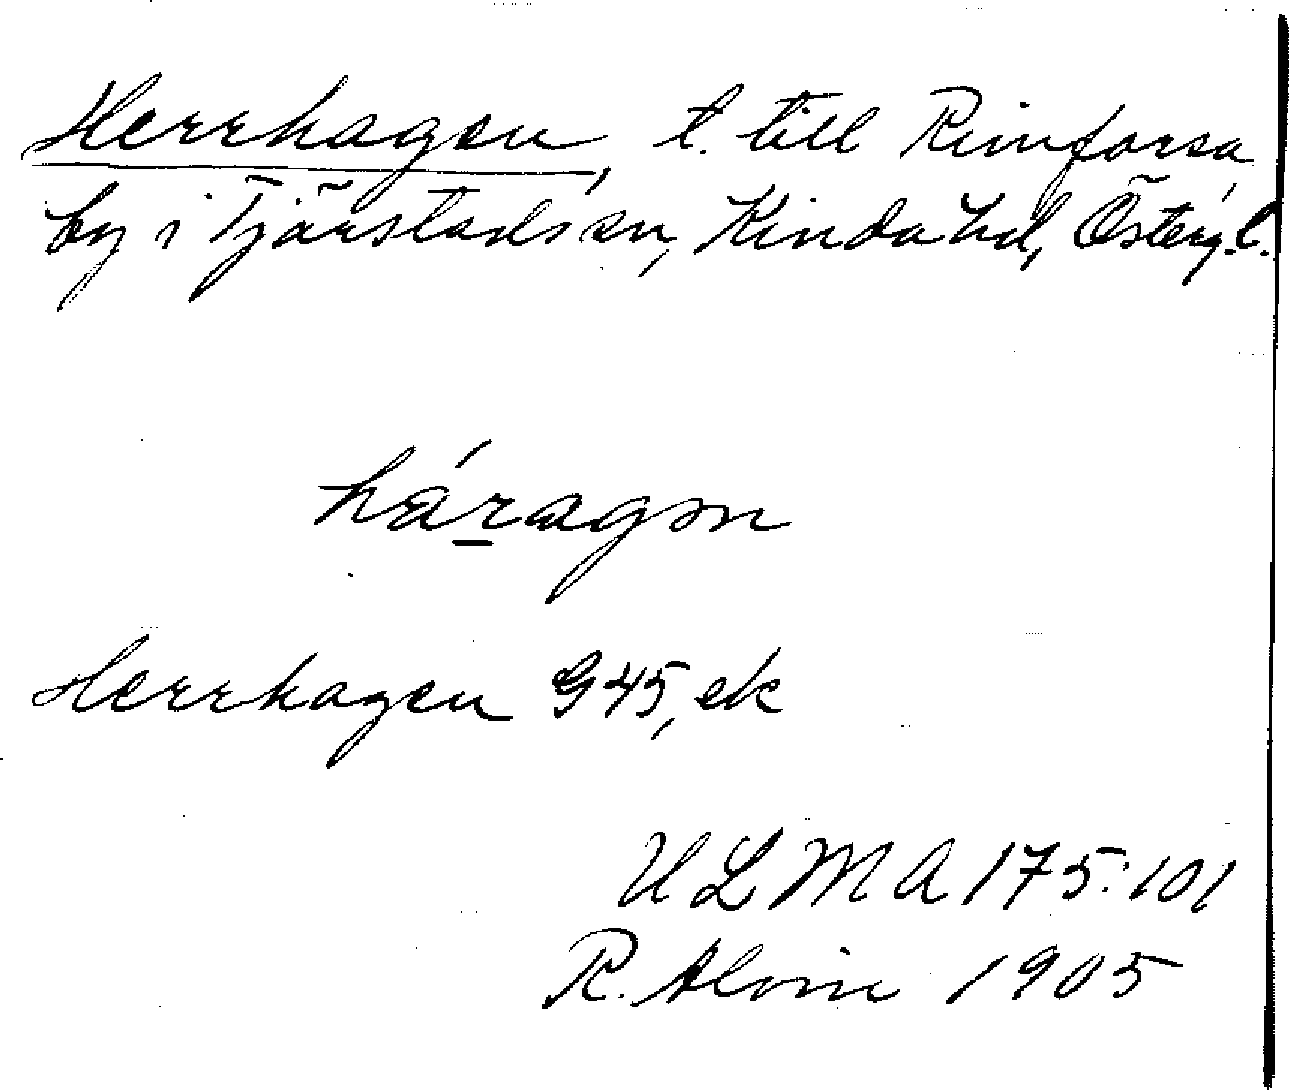 Herrhagen, t. till Rimforsa
by i Tjärstads sn, Kinda hd, Österg. l.
háragən
Herrhagen G 45, ek
ULMA 175:101
R. Alvin 1905